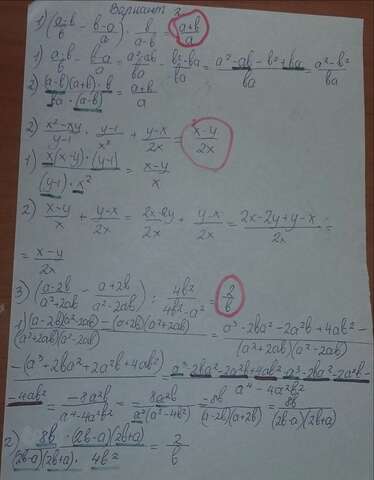 Вариант 2
1) (a-b/b - b-a/a) · b/a-b = a+b/a
1) a-b/b - b-a/a = a²-ab/ba - b²-ba/ba = a²-ab-b²+ba/ba = a²-b²/ba
2) (a-b)(a+b)·b/ba·(a-b) = a+b/a
2) x²-xy/y-1 · y-1/x² + y-x/2x = x-y/2x
1) x(x-y)·(y-1)/(y-1)·x² = x-y/x
2) x-y/x + y-x/2x = 2x-2y/2x + y-x/2x = 2x-2y+y-x/2x =
= x-y/2x
3) (a-2b/a²+2ab - a+2b/a²-2ab) : 4b²/4b²-a² = 2/b
1) (a-2b)(a²-2ab)-(a+2b)(a²+2ab)/(a²+2ab)(a²-2ab) = a³-2ba²-2a²b+4ab²-
-(a³+2ba²+2a²b+4ab²)/(a²+2ab)(a²-2ab) = a³-2ba²-2a²b+4ab²-a³-2ba²-2a²b-
-4ab²/a⁴-4a²b² = -8a²b/a⁴-4a²b² = -8a²b/a²(a²-4b²) = -8b/(a-2b)(a+2b) = 8b/(2b-a)(2b+a)
2) 8b·(2b-a)(2b+a)/(2b-a)(2b+a)·4b² = 2/b